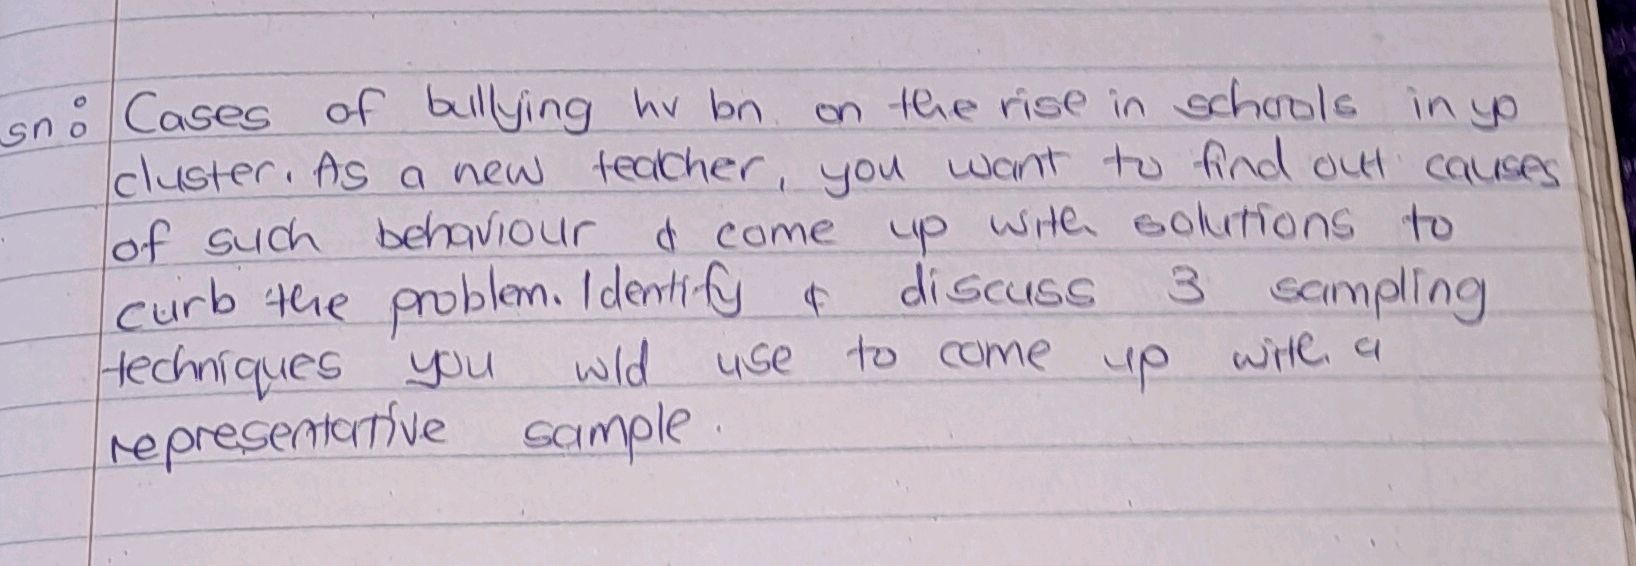 sn: Cases of bullying hv bn on the rise in schools in yo
cluster. As a new teacher, you want to find out causes
of such behaviour & come up with solutions to
curb the problem. Identify & discuss 3 sampling
techniques you wld use to come up with a
representative sample.